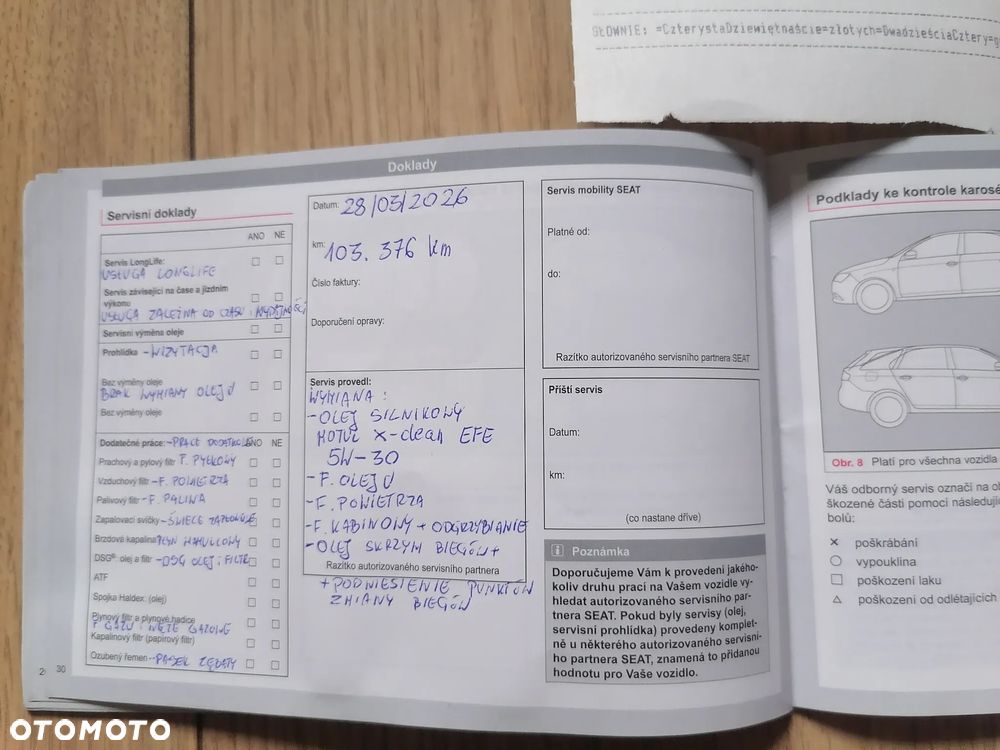 GŁÓWNIE: =CzterystaDziewiętnaście=złotych=DwadzieściaCztery=g
Doklady
Servisní doklady
ANO NE
Servis LongLife:
USŁUGA LONGLIFE
Servis závisející na čase a jízdním
výkonu
USŁUGA ZALEŻNA OD CZASU I WYDAJNOŚCI
Servisní výměna oleje
Prohlídka - WIZYTACJA
Bez výměny oleje
BRAK WYMIANY OLEJU
Bez výměny oleje
Dodatečné práce: - PRACE DODATKOWE ANO NE
Prachový a pylový filtr F. PYŁKOWY
Vzduchový filtr - F. POWIETRZA
Palivový filtr - F. PALIWA
Zapalovací svíčky - ŚWIECE ZAPŁONOWE
Brzdová kapalina PŁYN HAMULCOWY
DSG® olej a filtr - DSG OLEJ I FILTR
ATF
Spojka Haldex: (olej)
Plynový filtr a plynové hadice
F. GAZU I WĘŻE GAZOWE
Kapalinový filtr (papírový filtr)
Ozubený řemen - PASEK ZĘBATY
2
30
Datum: 28/03/2026
km: 103. 376 km
Číslo faktury:
Doporučení opravy:
Servis provedl:
WYMIANA :
- OLEJ SILNIKOWY
MOTUL X-clean EFE
5W-30
- F. OLEJU
- F. POWIETRZA
- F. KABINOWY + ODGRZYBIANIE
- OLEJ SKRZYNI BIEGÓW +
Razítko autorizovaného servisního partnera
+ PODNIESIENIE PUNKTÓW
ZMIANY BIEGÓW
Servis mobility SEAT
Platné od:
do:
Razítko autorizovaného servisního partnera SEAT
Příští servis
Datum:
km:
(co nastane dříve)
i Poznámka
Doporučujeme Vám k provedení jakého-
koliv druhu prací na Vašem vozidle vy-
hledat autorizovaného servisního par-
tnera SEAT. Pokud byly servisy (olej,
servisní prohlídka) provedeny komplet-
ně u některého autorizovaného servisní-
ho partnera SEAT, znamená to přidanou
hodnotu pro Vaše vozidlo.
Podklady ke kontrole karosé
Obr. 8 Platí pro všechna vozidla
Váš odborný servis označí na ob
škozené části pomocí následujíc
bolů:
× poškrábání
○ vypouklina
□ poškození laku
△ poškození od odlétajících
OTOMOTO